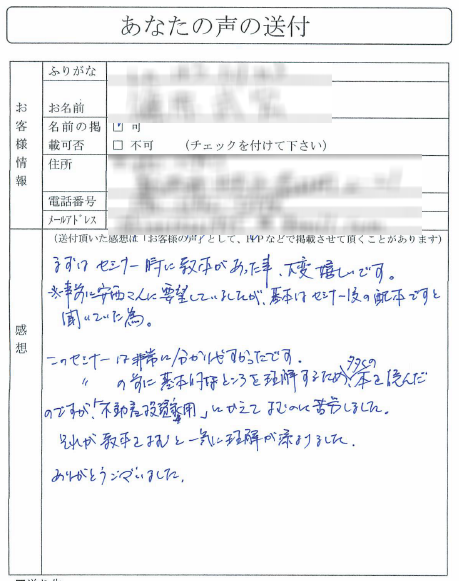 あなたの声の送付
お客様情報
ふりがな
お名前
名前の掲載可否
可
不可 (チェックを付けて下さい)
住所
電話番号
メールアドレス
感想
(送付頂いた感想は「お客様の声」として、HPなどで掲載させて頂くことがあります)
まずはセミナー時に教本があった事、大変嬉しいです。
※事前に安西さんに要望していましたが、基本はセミナー後の配本ですと
聞いていた為。
このセミナーは非常に分かりやすかったです。
〃 の前に基本的なところを理解するため、多くの本を読んだ
のですが「不動産投資専用」にかえてよむのに苦労しました。
それが教本をよむと一気に理解が深まりました。
ありがとうございました。